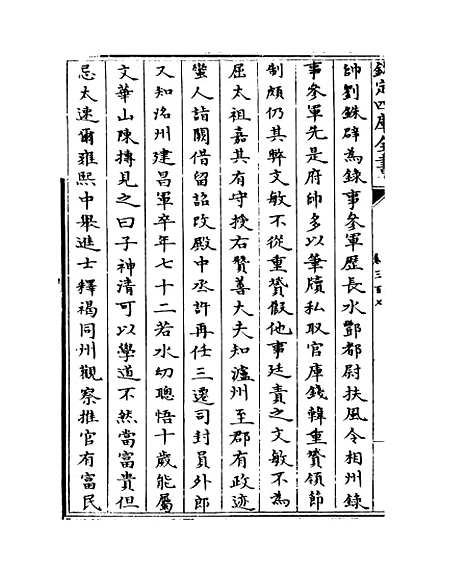 欽定四庫全書
卷三百七
帥劉銖辟為錄事參軍歷長水酆都尉扶風令相州錄
事參軍先是府帥多以筆牘私取官庫錢韓重贇領節
制頗仍其弊文敏不從重贇假他事廷責之文敏不為
屈太祖嘉其有守擢右贊善大夫知瀘州至郡有政迹
蠻人詣闕借留詔改殿中丞許再任三遷司封員外郎
又知洺州建昌軍卒年七十二若水幼聰悟十歲能屬
文華山陳摶見之曰子神清可以學道不然當富貴但
忌太速爾雍熙中舉進士釋褐同州觀察推官有富民